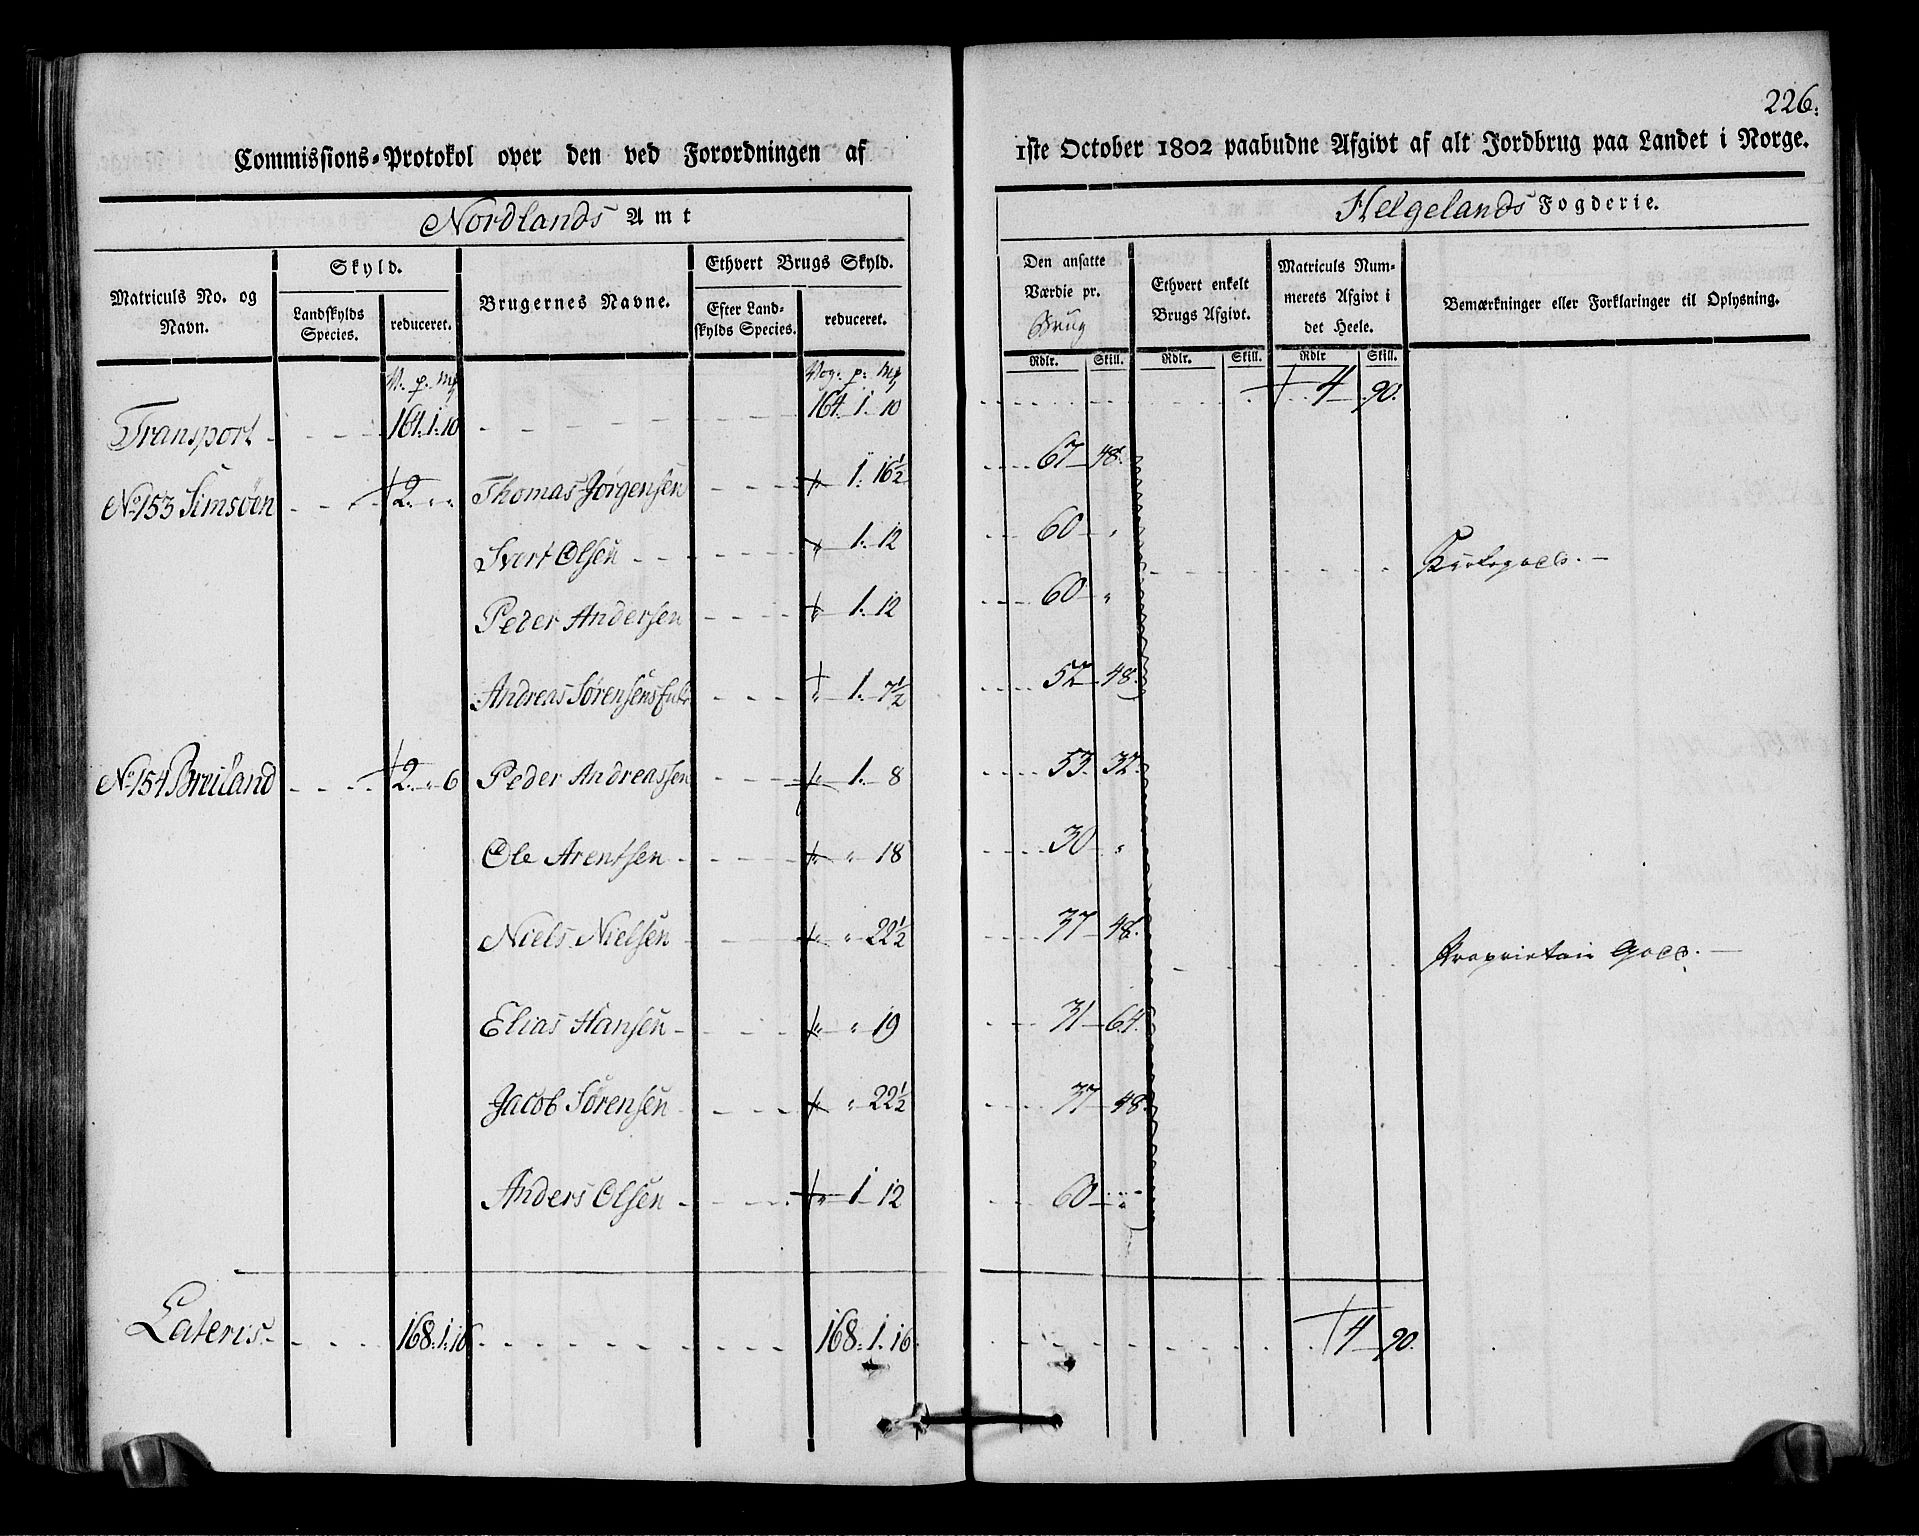 226.
Commissions-Protokol over den ved Forordningen af 1ste October 1802 paabudne Afgivt af alt Jordbrug paa Landet i Norge.
Nordlands Amt Helgelands Fogderie.
Matriculs No. og Navn. Skyld. Landskylds Species. reduceret. Brugernes Navne. Ethvert Brugs Skyld. Efter Landskylds Species. reduceret. Den ansatte Værdie pr. Brug Ethvert enkelt Brugs Afgivt. Matriculs Nummerets Afgivt i det Heele. Bemærkninger eller Forklaringer til Oplysning.
Rdlr. Skill. Rdlr. Skill. Rdlr Skill.
V. p. Mk Vog. p. Mk
Transport 164. 1. 10 164. 1. 10 4 90.
No 153 Simsöen 2. " " Thomas Jörgensen " 1. 16½ 67 48.
Ivert Olsen " 1. 12 60 "
Kirkegods.
Peder Andersen " 1. 12 60 "
Andreas Sörensens " 1. 7½ 52 48.
No 154 Breiland 2. " 6 Peder Andreassen " 1. 8 53. 32.
Ole Arentsen " " 18 30 "
Niels Nielsen " " 22½ 37 48.
Proprietair Gods.
Elias Hansen " " 19 31 64.
Jacob Sörensen " " 22½ 37 48.
Anders Olsen " 1 12 60 "
Lateris 168. 1. 16 168. 1. 16. 4 90.